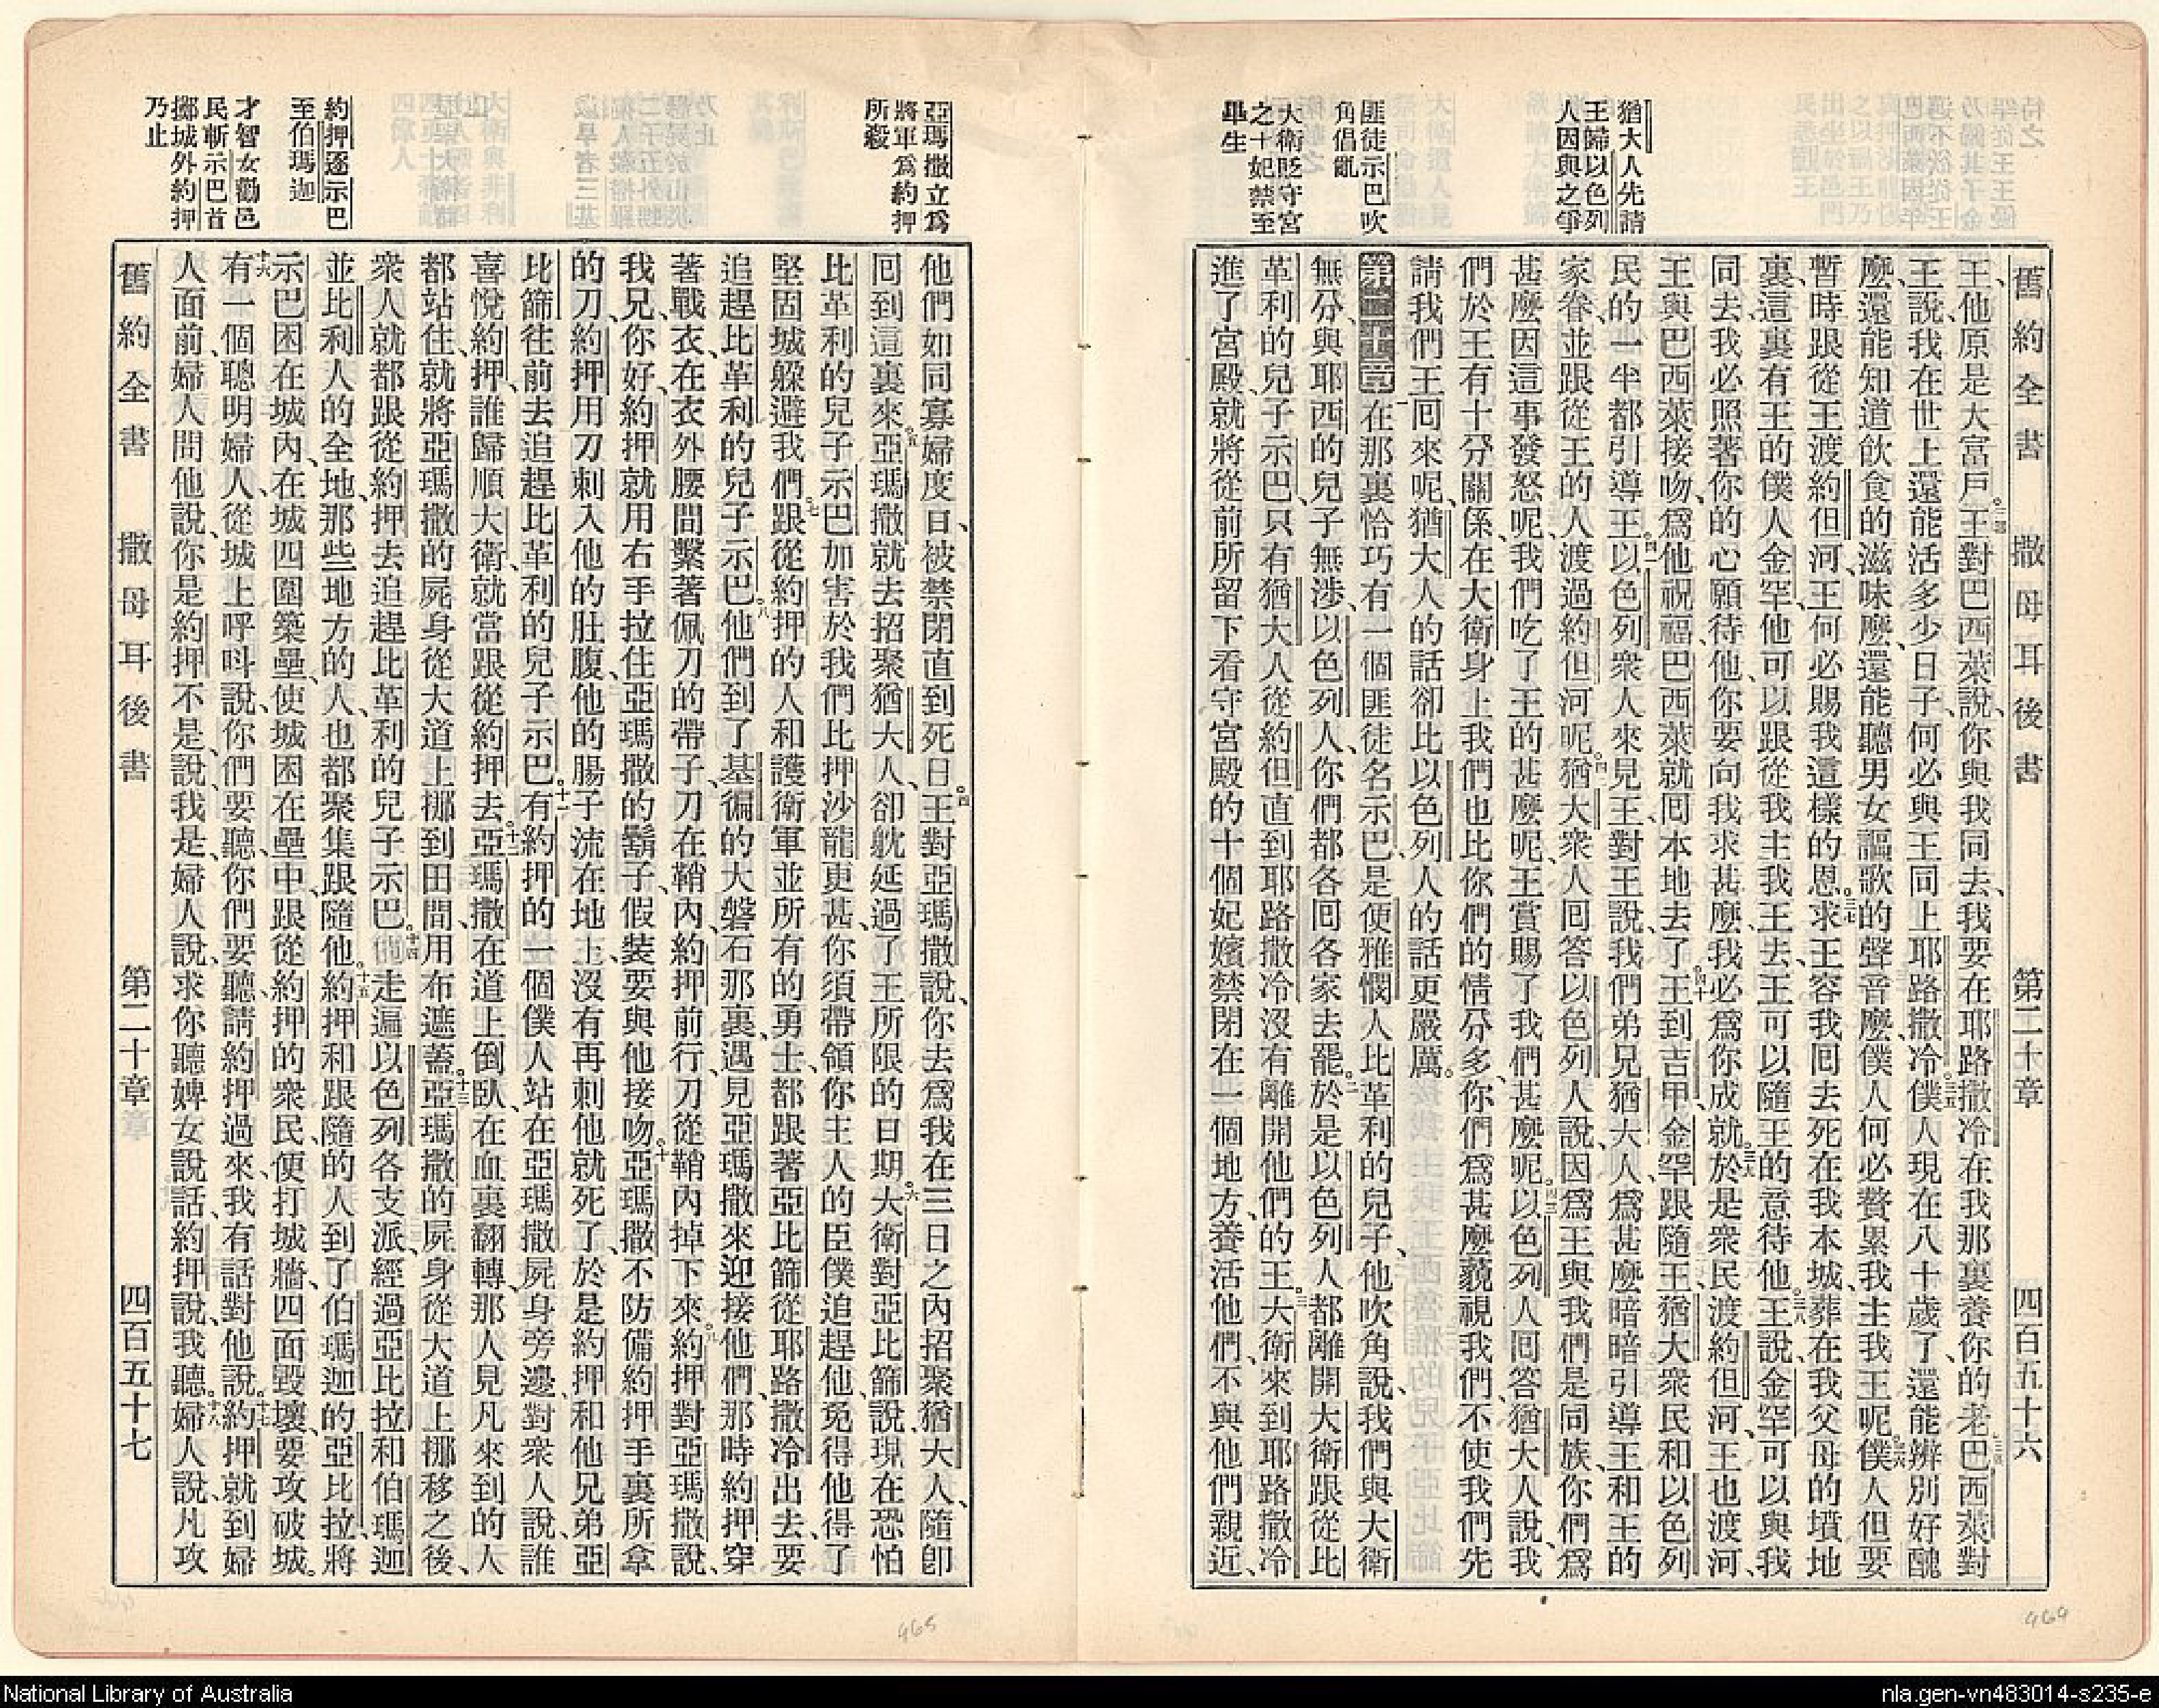 舊約全書 撒母耳後書 第二十章 四百五十六
猶大人先請
王歸以色列
人因與之爭
匪徒示巴吹
角倡亂
大衛貶守宮
之十妃禁至
畢生
王、他原是大富戶。三三王對巴西萊說、你與我同去、我要在耶路撒冷在我那裏養你的老。三四巴西萊對
王說、我在世上還能活多少日子、何必與王同上耶路撒冷。三五僕人現在八十歲了、還能辨別好醜
麼、還能知道飲食的滋味麼、還能聽男女謳歌的聲音麼、僕人何必贅累我主我王呢。三六僕人但要
暫時跟從王渡約但河、王何必賜我這樣的恩。三七求王容我回去死在我本城、葬在我父母的墳地
裏、這裏有王的僕人金罕、他可以跟從我主我王去、王可以隨王的意待他。三八王說、金罕可以與我
同去、我必照著你的心願待他、你要向我求甚麼、我必爲你成就。三九於是衆民渡約但河、王也渡河、
王與巴西萊接吻、爲他祝福、巴西萊就回本地去了。四十王到吉甲、金罕跟隨王、猶大衆民和以色列
民的一半、都引導王。四一以色列衆人來見王、對王說、我們弟兄猶大人、爲甚麼暗暗引導王和王的
家眷、並跟從王的人渡過約但河呢。四二猶大衆人回答以色列人說、因爲王與我們是同族、你們爲
甚麼因這事發怒呢、我們吃了王的甚麼呢、王賞賜了我們甚麼呢。四三以色列人回答猶大人說、我
們於王有十分關係、在大衛身上我們也比你們的情分多、你們爲甚麼藐視我們、不使我們先
請我們王回來呢、猶大人的話卻比以色列人的話更嚴厲。
第二十章 在那裏恰巧有一個匪徒名示巴、是便雅憫人比革利的兒子、他吹角說、我們與大衛
無分、與耶西的兒子無涉、以色列人、你們都各回各家去罷。二於是以色列人都離開大衛跟從比
革利的兒子示巴、只有猶大人從約但直到耶路撒冷沒有離開他們的王。三大衛來到耶路撒冷
進了宮殿、就將從前所留下看守宮殿的十個妃嬪禁閉在一個地方、養活他們、不與他們親近、
亞瑪撒立爲
將軍爲約押
所殺
約押逐示巴
至伯瑪迦
才智女勸邑
民斬示巴首
擲城外約押
乃止
他們如同寡婦度日、被禁閉直到死日。四王對亞瑪撒說、你去爲我在三日之內招聚猶大人、隨卽
回到這裏來。五亞瑪撒就去招聚猶大人、卻躭延過了王所限的日期。六大衛對亞比篩說、現在恐怕
比革利的兒子示巴加害於我們、比押沙龍更甚、你須帶領你主人的臣僕追趕他、免得他得了
堅固城躲避我們。七跟從約押的人和護衛軍並所有的勇士、都跟著亞比篩從耶路撒冷出去、要
追趕比革利的兒子示巴。八他們到了基徧的大磐石那裏、遇見亞瑪撒來迎接他們、那時約押穿
著戰衣、在衣外腰間繫著佩刀的帶子、刀在鞘內、約押前行、刀從鞘內掉下來。九約押對亞瑪撒說、
我兄你好、約押就用右手拉住亞瑪撒的鬍子、假裝要與他接吻。十亞瑪撒不防備約押手裏所拿
的刀、約押用刀刺入他的肚腹、他的腸子流在地上、沒有再刺他就死了、於是約押和他兄弟亞
比篩往前去追趕比革利的兒子示巴。十一有約押的一個僕人站在亞瑪撒屍身旁邊、對衆人說、誰
喜悅約押、誰歸順大衛、就當跟從約押去。十二亞瑪撒在道上倒臥、在血裏翻轉、那人見凡來到的人
都站住、就將亞瑪撒的屍身從大道上挪到田間、用布遮蓋。十三亞瑪撒的屍身從大道上挪移之後、
衆人就都跟從約押去追趕比革利的兒子示巴。十四他走遍以色列各支派、經過亞比拉和伯瑪迦
並比利人的全地、那些地方的人、也都聚集跟隨他。十五約押和跟隨的人到了伯瑪迦的亞比拉、將
示巴困在城內、在城四圍築壘、使城困在壘中、跟從約押的衆民、便打城牆、四面毀壞、要攻破城。
十六有一個聰明婦人、從城上呼呌說、你們要聽、你們要聽、請約押過來、我有話對他說。十七約押就到婦
人面前、婦人問他說、你是約押不是、說、我是、婦人說、求你聽婢女說話、約押說、我聽。十八婦人說、凡攻
舊約全書 撒母耳後書 第二十章 四百五十七
465
464
National Library of Australia
nla.gen-vn483014-s235-e